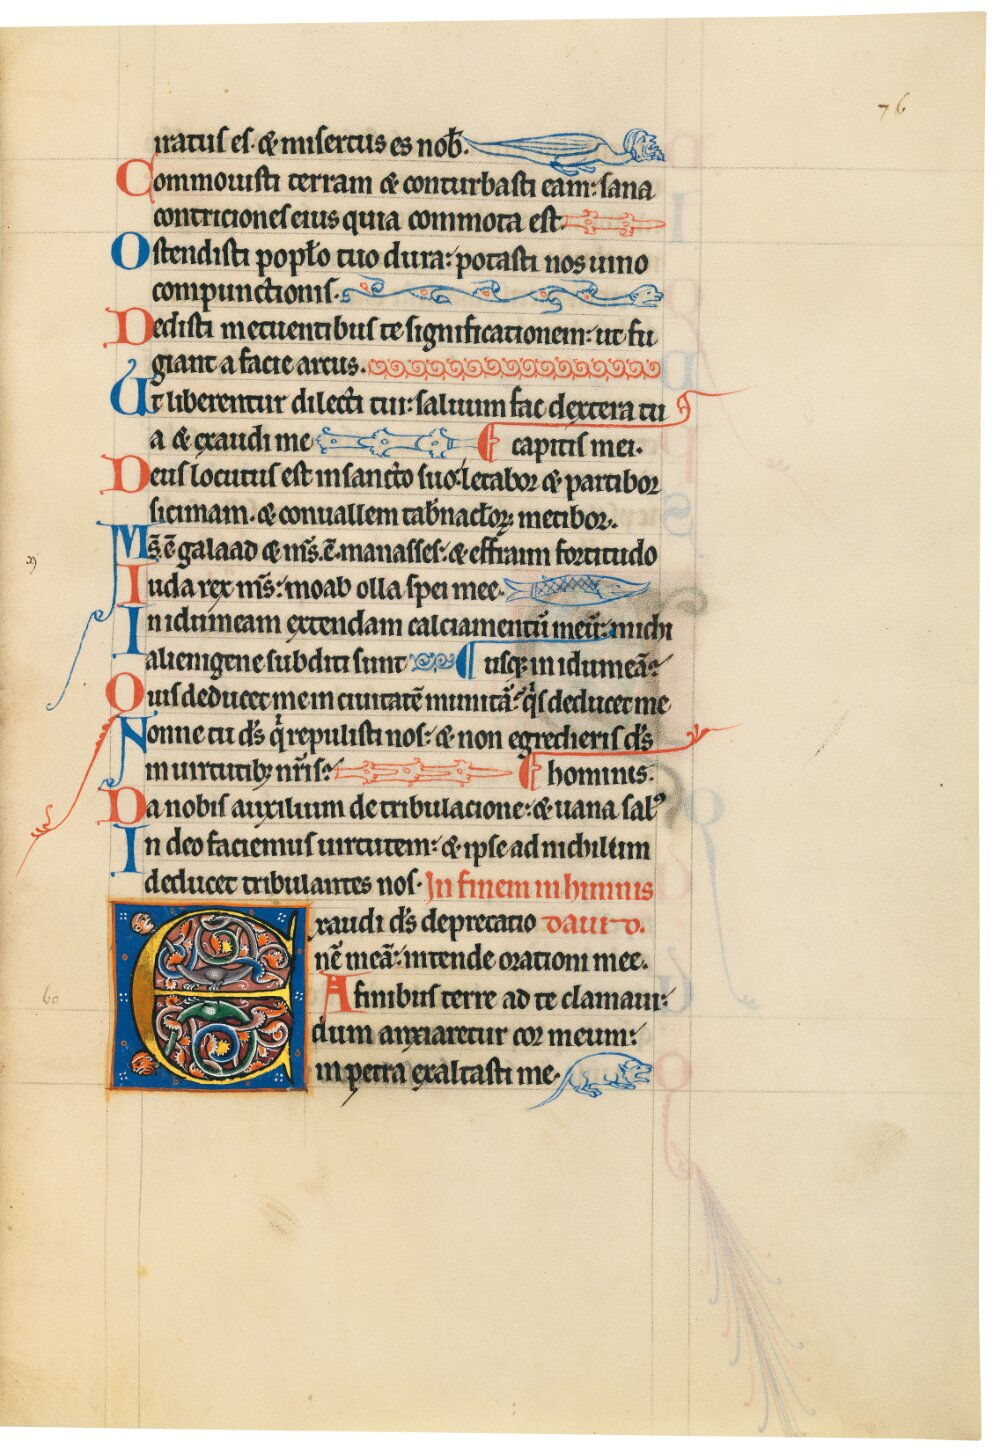 76
iratus es. & misertus es nob̄.
Commouisti terram & conturbasti eam: sana
contriciones eius quia commota est.
Ostendisti popl̄o tuo dura: potasti nos uino
compunctionis.
Dedisti metuentibus te significationem: ut fu
giant a facie arcus.
Ut liberentur dilecti tui: saluum fac dextera tu
a & exaudi me capitis mei.
Deus locutus est in sancto suo: letabor & partibor
sicimam. & conuallem tab̄nacl̄oꝝ metibor.
Ms̄. ē galaad & ms̄. ē. manasses: & effraim fortitudo
Iuda rex ms̄: moab olla spei mee.
In idumeam extendam calciamentū meū: michi
alienigene subditi sunt usq; in idumeā:
Quis deducet me in ciuitatē munitā: q̄s deducet me
Nonne tu ds̄ q̄ repulisti nos: & non egredieris ds̄
in uirtutib; nr̄is: hominis.
Da nobis auxilium de tribulacione: & uana salꝰ
In deo faciemus uirtutem: & ipse ad nichilum
deducet tribulantes nos. In finem in himnis
Exaudi ds̄ deprecatio dauid.
nē meā: intende orationi mee.
60 A finibus terre ad te clamaui:
dum anxiaretur cor meum:
in petra exaltasti me.